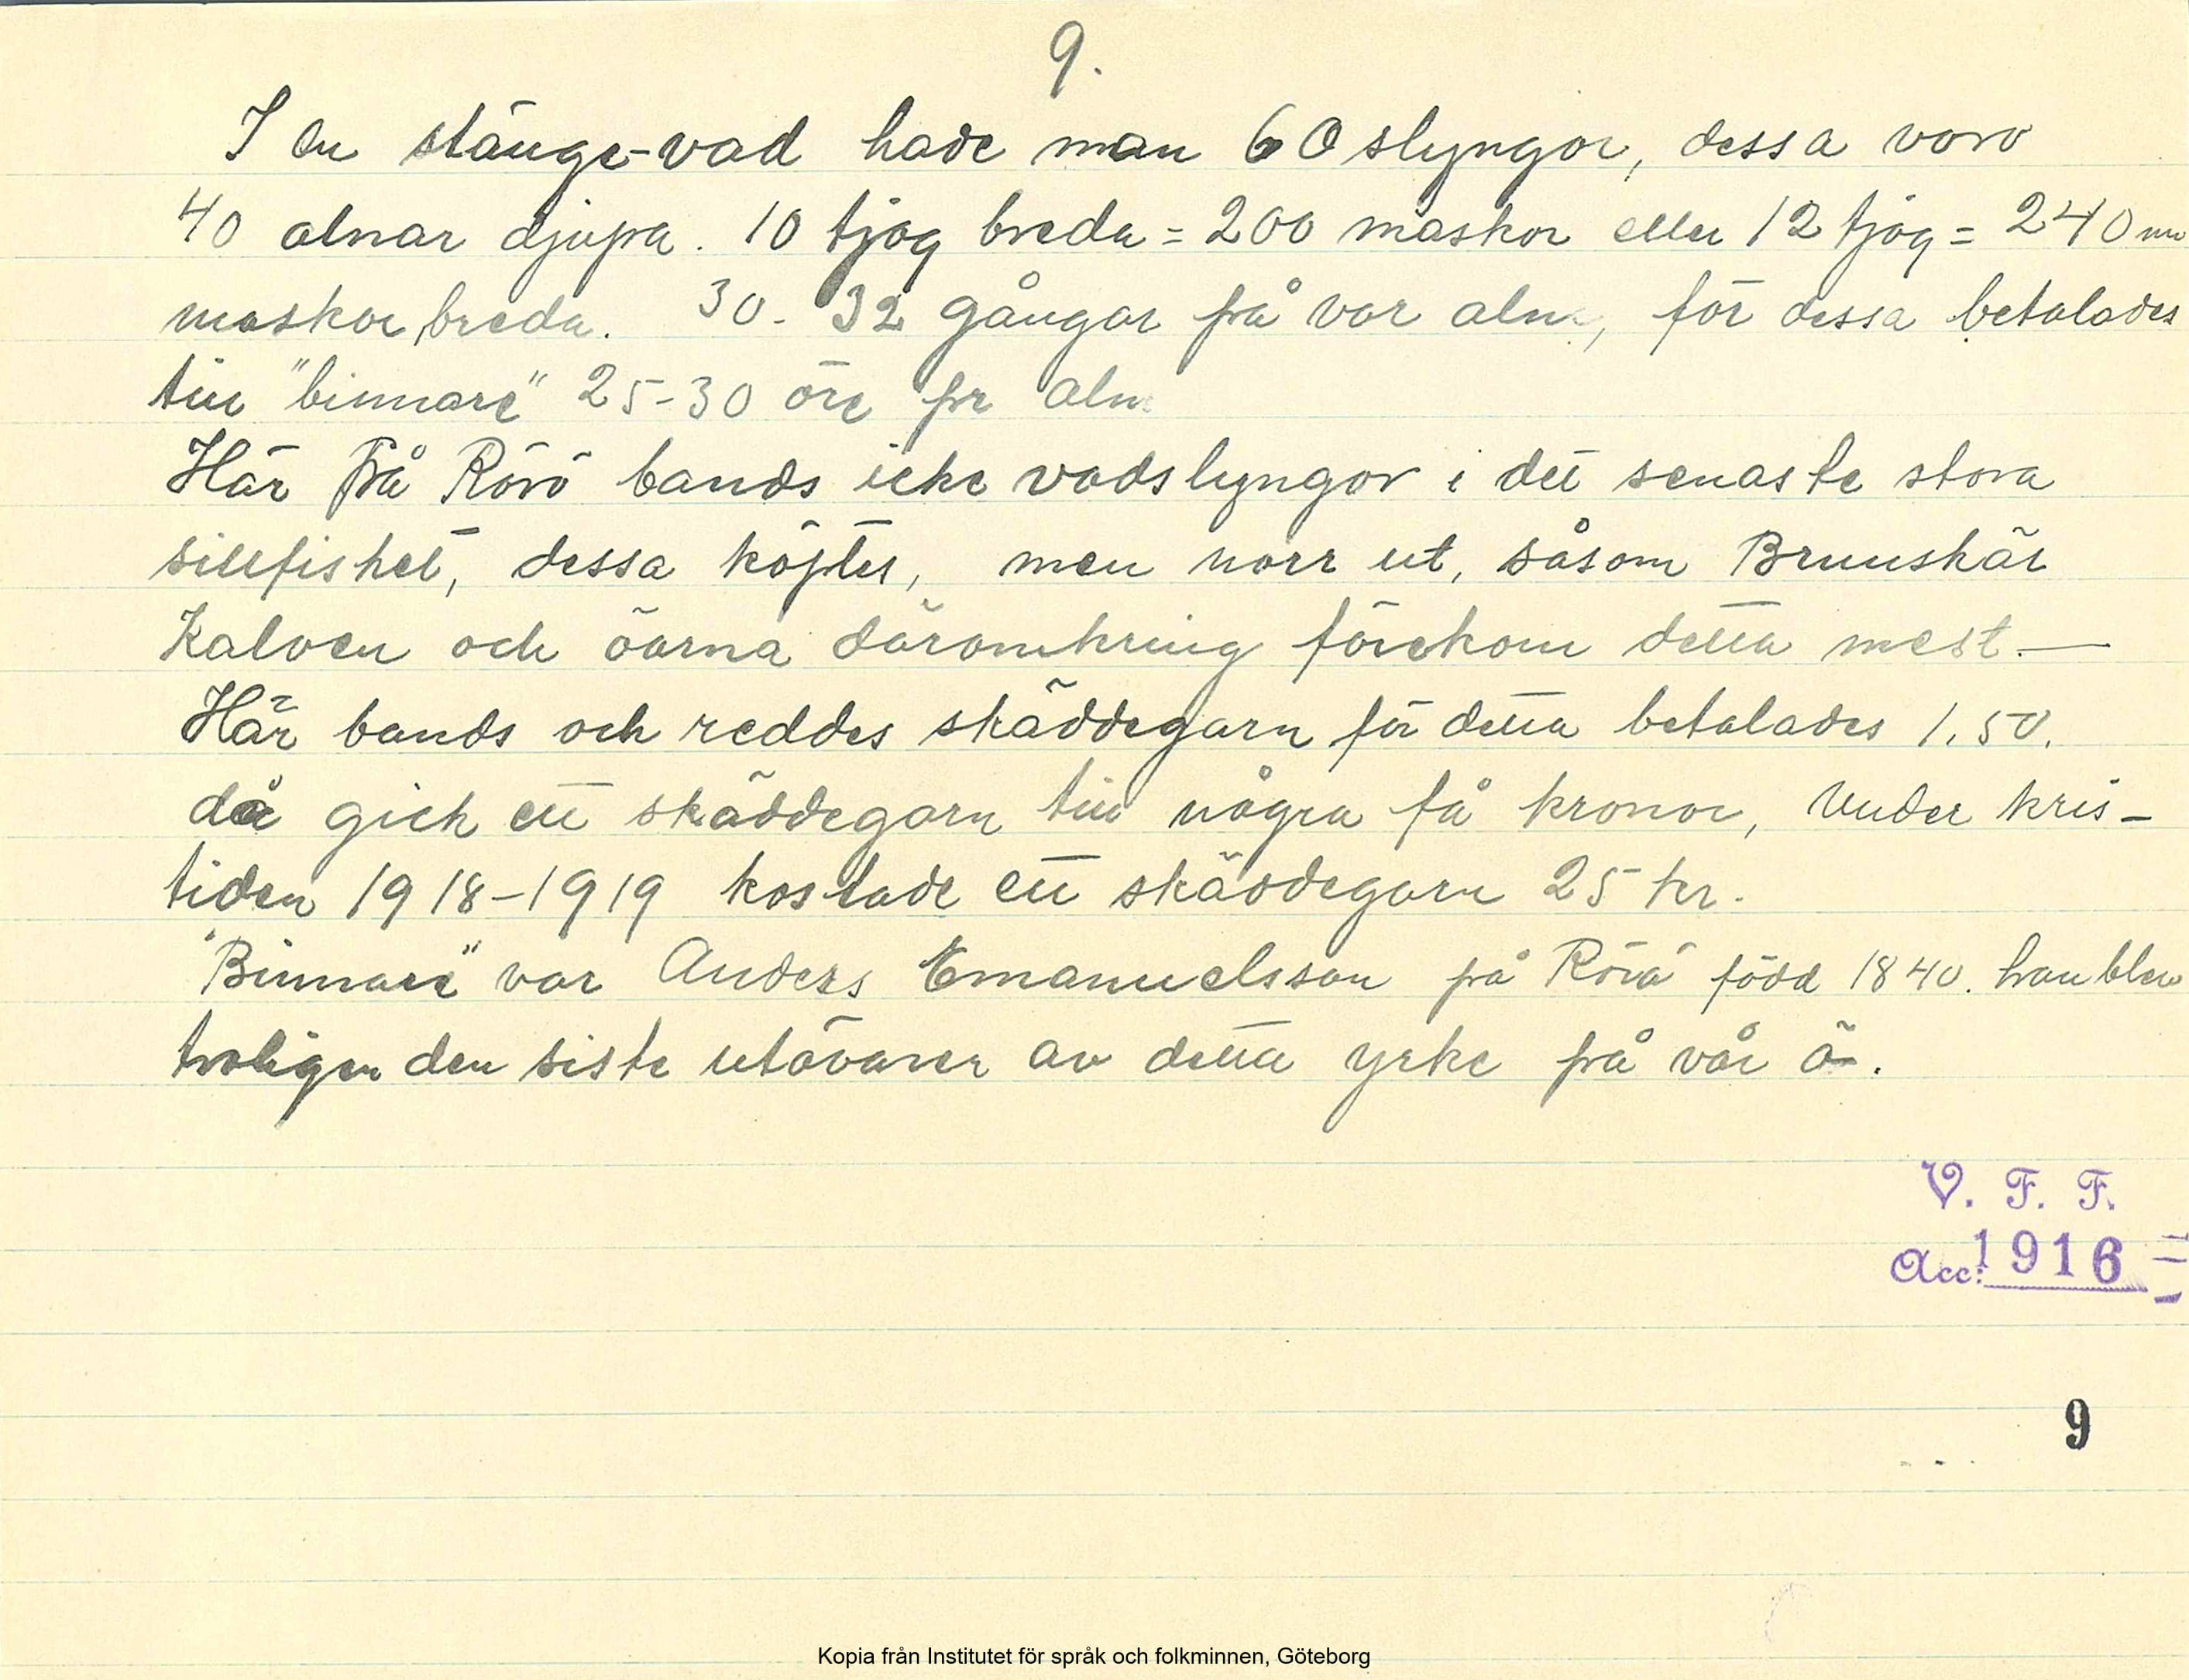 9.
I en stänge-vad hade man 60 slyngor, dessa voro
40 alnar djupa. 10 tjog breda = 200 maskor eller 12 tjog = 240
maskor breda. 30-32 gångar på var aln, för dessa betalades
till "binnare" 25-30 öre pr aln
Här på Rörö bands icke vadslyngor i det senaste stora
sillfisket, dessa köptes, men norr ut, såsom Brunskär
Kalven och öarna däromkring förekom detta mest.—
Här bands och reddes skäddegarn för detta betalades 1,50.
då gick ett skäddegarn till några få kronor, Under kris-
tiden 1918-1919 kostade ett skäddegarn 25 kr.
"Binnare" var Anders Emanuelsson på Rörö född 1840. han blev
troligen den siste utövaren av detta yrke på vår ö.
V. F. F.
Acc: 1916
9
Kopia från Institutet för språk och folkminnen, Göteborg